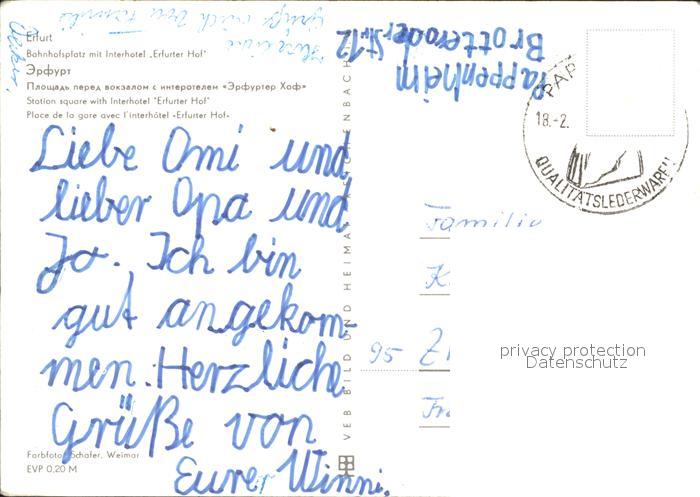 Erfurt
Bahnhofsplatz mit Interhotel „Erfurter Hof"
Эрфурт
Площадь перед вокзалом с интеротелем «Эрфуртер Хоф»
Station square with Interhotel "Erfurter Hof"
Place de la gare avec l'interhôtel «Erfurter Hof»
Liebe Omi und
lieber Opa und
Jo. Ich bin
gut angekom-
men. Herzliche
Grüße von
Eurer Winni.
Farbfoto: Schäfer, Weimar
EVP 0,20 M
VEB BILD UND HEIMAT REICHENBACH
Pappenheim
Brotteroder Str. 12
18.-2.
QUALITÄTSLEDERWAREN
Familie
95
privacy protection
Datenschutz